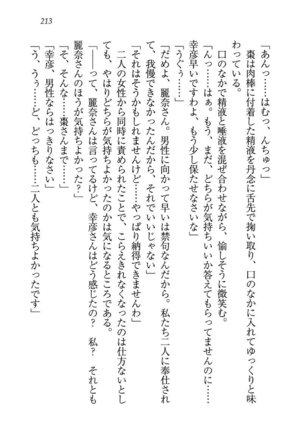 213
「あんっ……はむっ、んちゅっ」
棗は肉棒に付着した精液を丹念に舌先で掬い取り、口のなかに入れてゆっくりと味
わっている。
口のなかで精液と唾液を混ぜ合わせながら、愉しそうに微笑む。
「んっ……はぁ。もう、まだ、どちらが気持ちいいか答えてもらってませんのに……
幸彦早いですわよ。もう少し保たせなさいな」
「うぐぅ……」
「それはそうかもしれませんけど……やっぱり納得できませんわ」
て、我慢できなかったんだから、それでいいじゃない」
「棗さん、麗奈さん。男性に向かって早いは禁句なんだから。私たち二人に奉仕され
二人の女性から同時に責められたことで、こらえきれなくなったのは仕方ないとし
ても、やはりどちらが気持ちよかったのかは気になるところである。
「――って、麗奈さんは言ってるけど、幸彦さんはどう感じたの？　私？　それとも
麗奈さんのほうが気持ちよかった？」
「そ、そんな……棗さんまで……」
「幸彦、男性ならはっきりなさい」
「う、うぅ……ど、どっちも……二人とも気持ちよかったです」